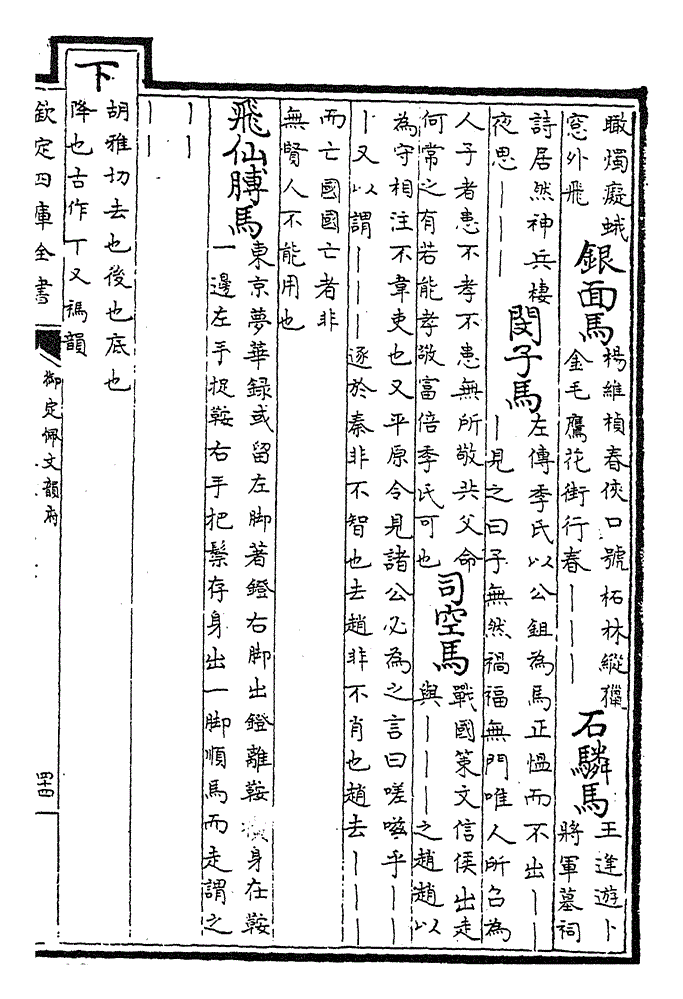 瞰燭癡蛾
窓外飛
銀面馬
楊維楨春俠口號柘林縱獵
金毛鷹花街行春丨丨丨
石麟馬
王逢遊卜
將軍墓祠
詩居然神兵棲
夜思丨丨丨
閔子馬
左傳季氏以公鉏為馬正愠而不出丨丨
丨見之曰子無然禍福無門唯人所召為
人子者患不孝不患無所敬共父命
何常之有若能孝敬富倍季氏可也
司空馬
戰國策文信侯出走
與丨丨丨之趙趙以
為守相注不韋吏也又平原令見諸公必為之言曰嗟嗞乎丨丨
丨又以謂丨丨丨逐於秦非不智也去趙非不肖也趙去丨丨丨
而亡國國亡者非
無賢人不能用也
飛仙膊馬
東京夢華録或留左脚著鐙右脚出鐙離鞍橫身在鞍
一邊左手捉鞍右手把鬃存身出一脚順馬而走謂之
丨丨
丨丨
下
胡雅切去也後也底也
降也古作丅又禡韻
欽定四庫全書
御定佩文韻府
四十四